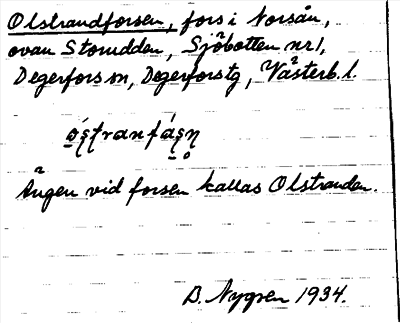 Olstrandforsen, fors i Norsån,
ovan Storudden, Sjöbotten nr 1,
Degerfors sn, Degerfors tg, Västerb. l.
Ängen vid forsen kallas Olstranden.
B. Nygren 1934.